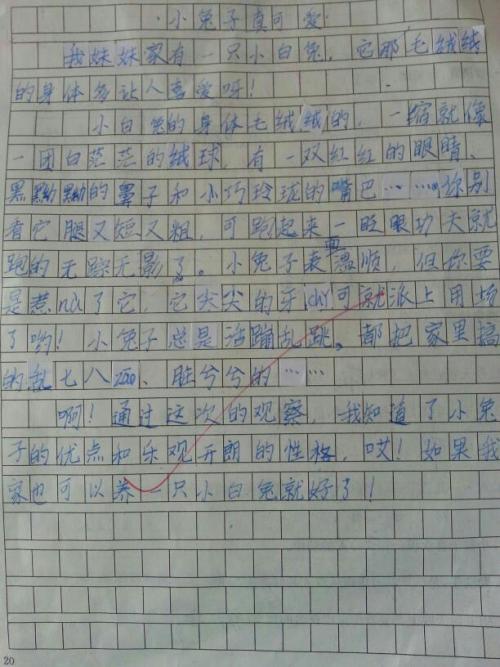 小兔子真可爱
我妹妹家有一只小白兔，它那毛绒绒
的身体多让人喜爱呀！
小白兔的身体毛绒绒的，一缩就像
一团白茫茫的绒球，有一双红红的眼睛、
黑黝黝的鼻子和小巧玲珑的嘴巴……你别
看它腿又短又粗，可跑起来一眨眼功夫就
跑的无踪无影了。小兔子表面温顺，但你要
是惹nǎ了它，它尖尖的牙ichǐ可就派上用场
了哟！小兔子总是活蹦乱跳。都把家里搞
的乱七八zāo、脏兮兮的……
啊！通过这次的观察，我知道了小兔
子的优点和乐观开朗的性格，哎！如果我
家也可以养一只小白兔就好了！
20